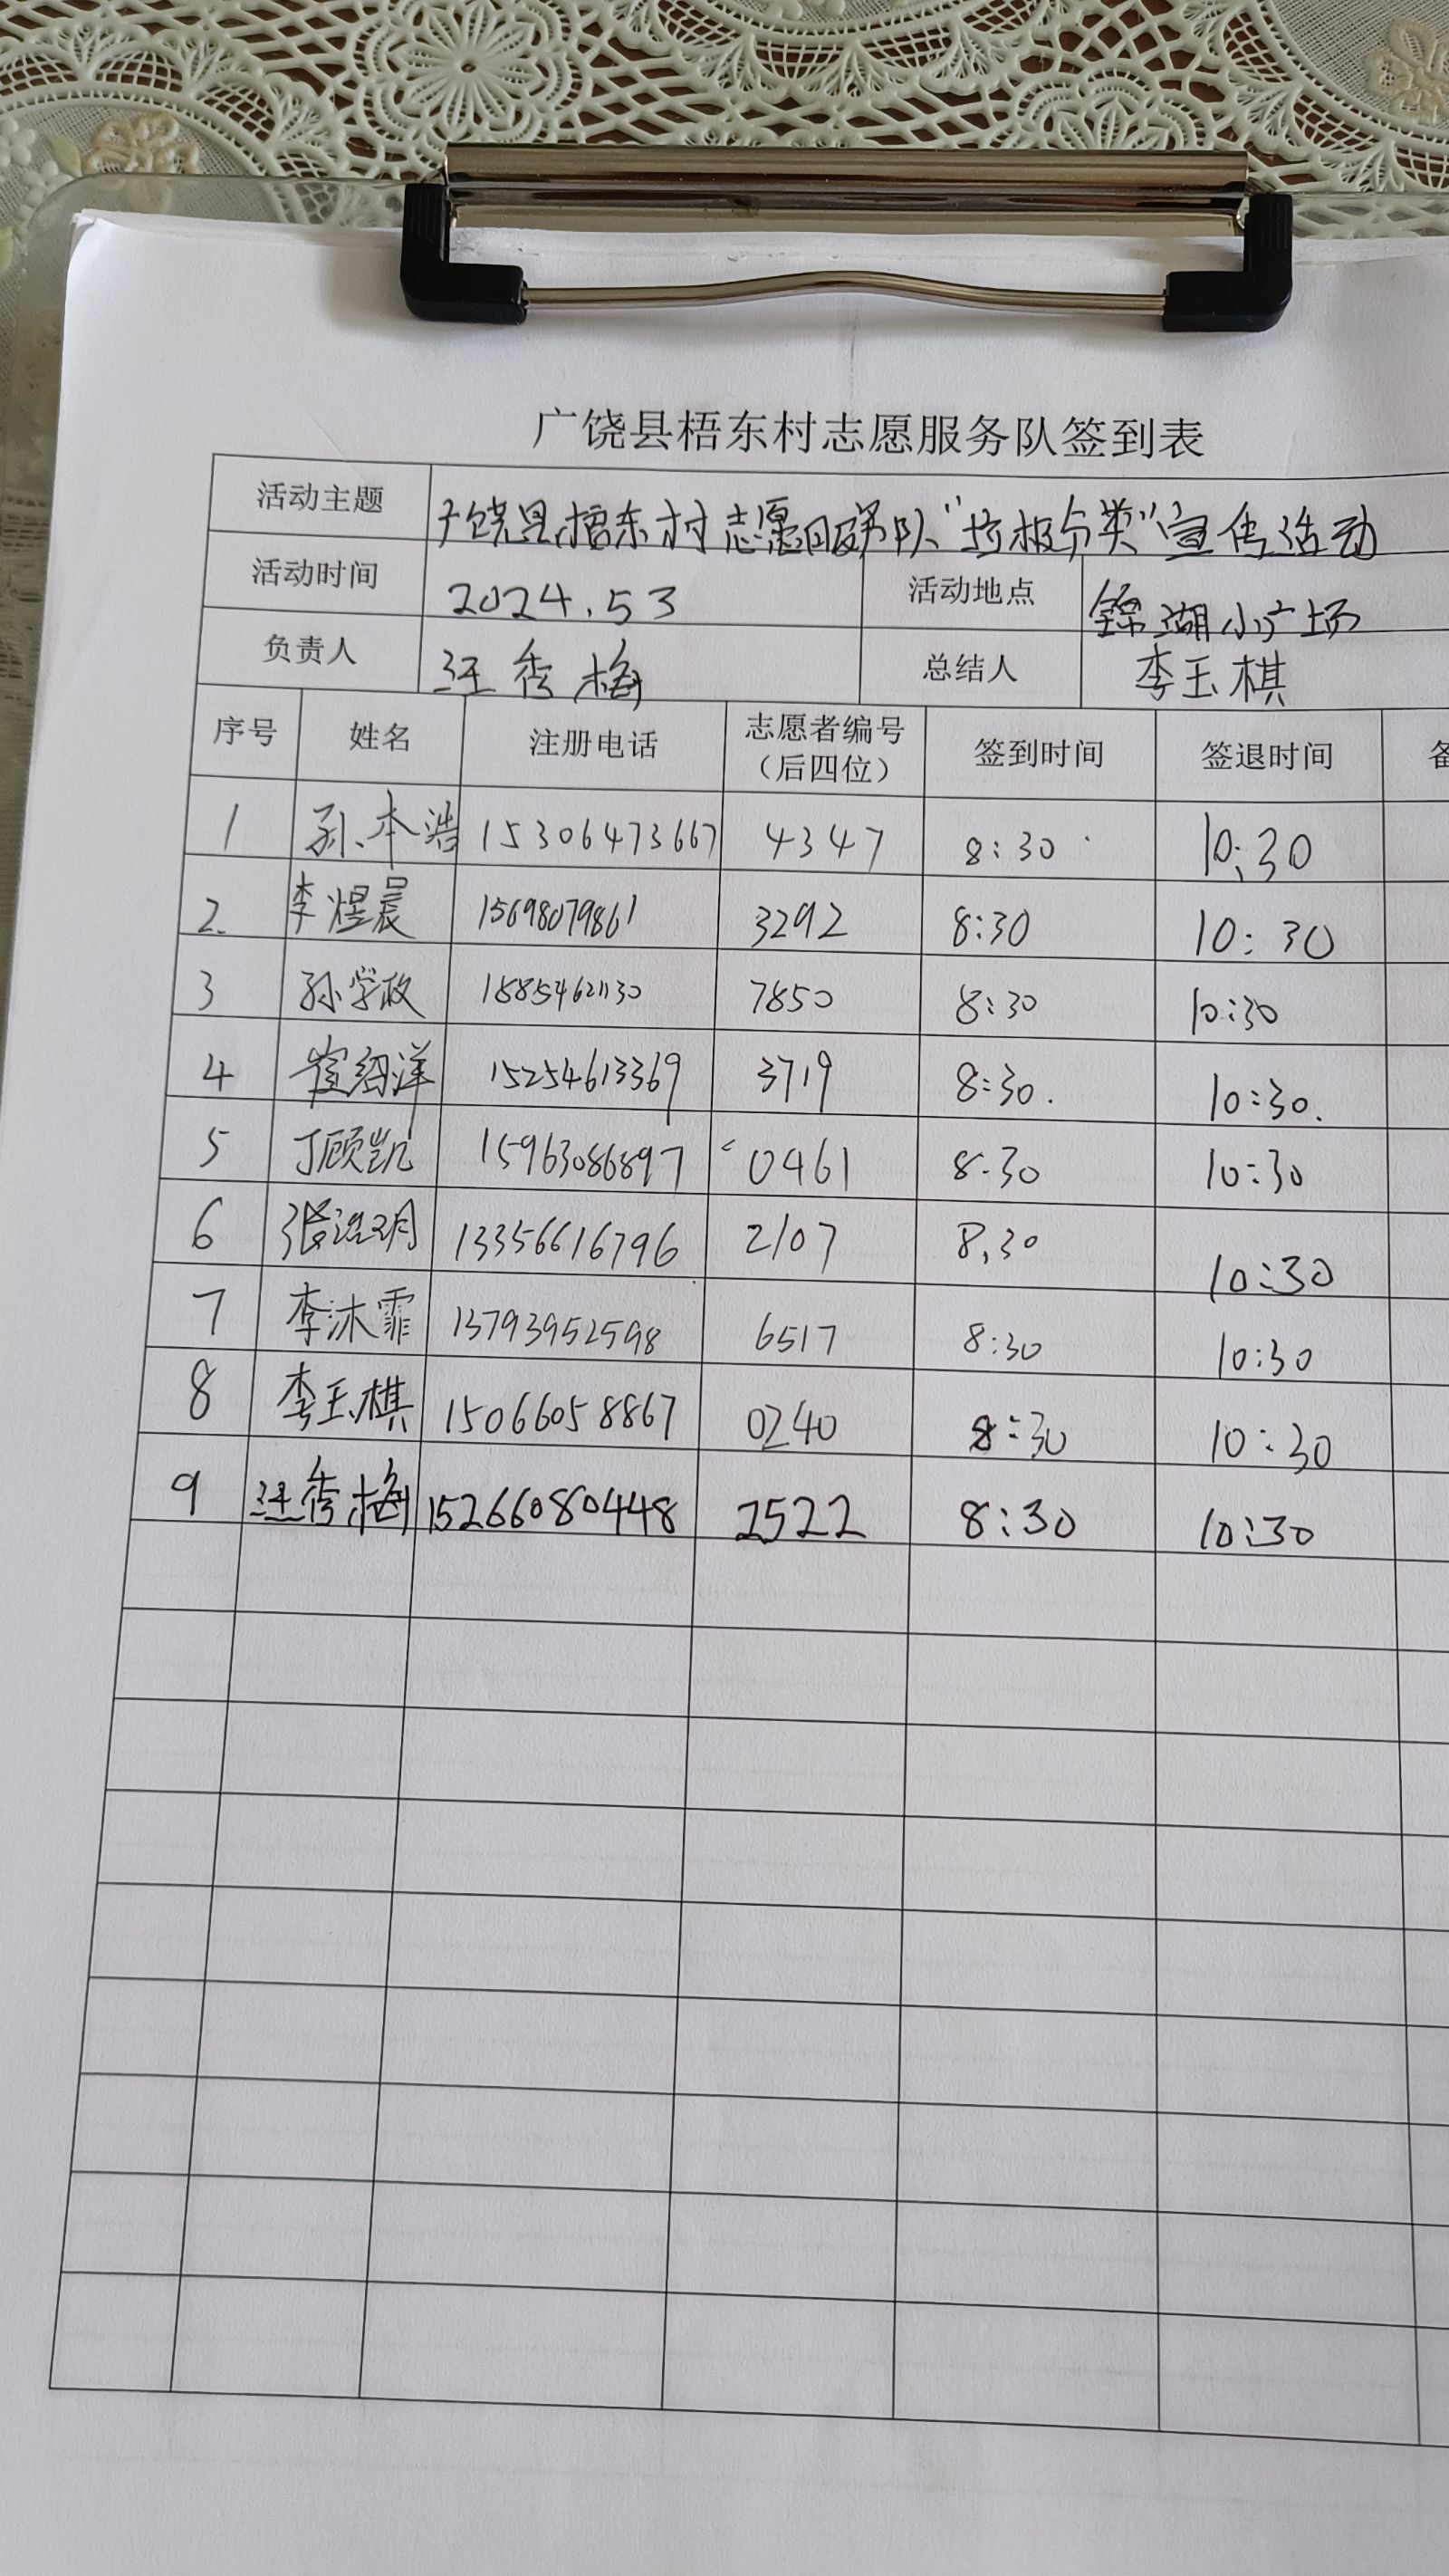 广饶县梧东村志愿服务队签到表
活动主题 广饶县梧东村志愿服务队“垃圾分类”宣传活动
活动时间 2024.53 活动地点 锦湖小广场
负责人 汪秀梅 总结人 李玉棋
序号 姓名 注册电话 志愿者编号（后四位） 签到时间 签退时间 备
1 孙本浩 15306473667 4347 8:30 10:30
2. 李煜晨 15698079861 3292 8:30 10:30
3 孙学政 15854621130 7850 8:30 10:30
4 崔绍洋 15254613369 3719 8:30. 10:30.
5 丁顾凯 15963086897 0461 8:30 10:30
6 张 13356616796 2107 8,30 10:30
7 李沐霏 13793952598 6517 8:30 10:30
8 李玉棋 15066058867 0240 8:30 10:30
9 汪秀梅 15266080448 2522 8:30 10:30